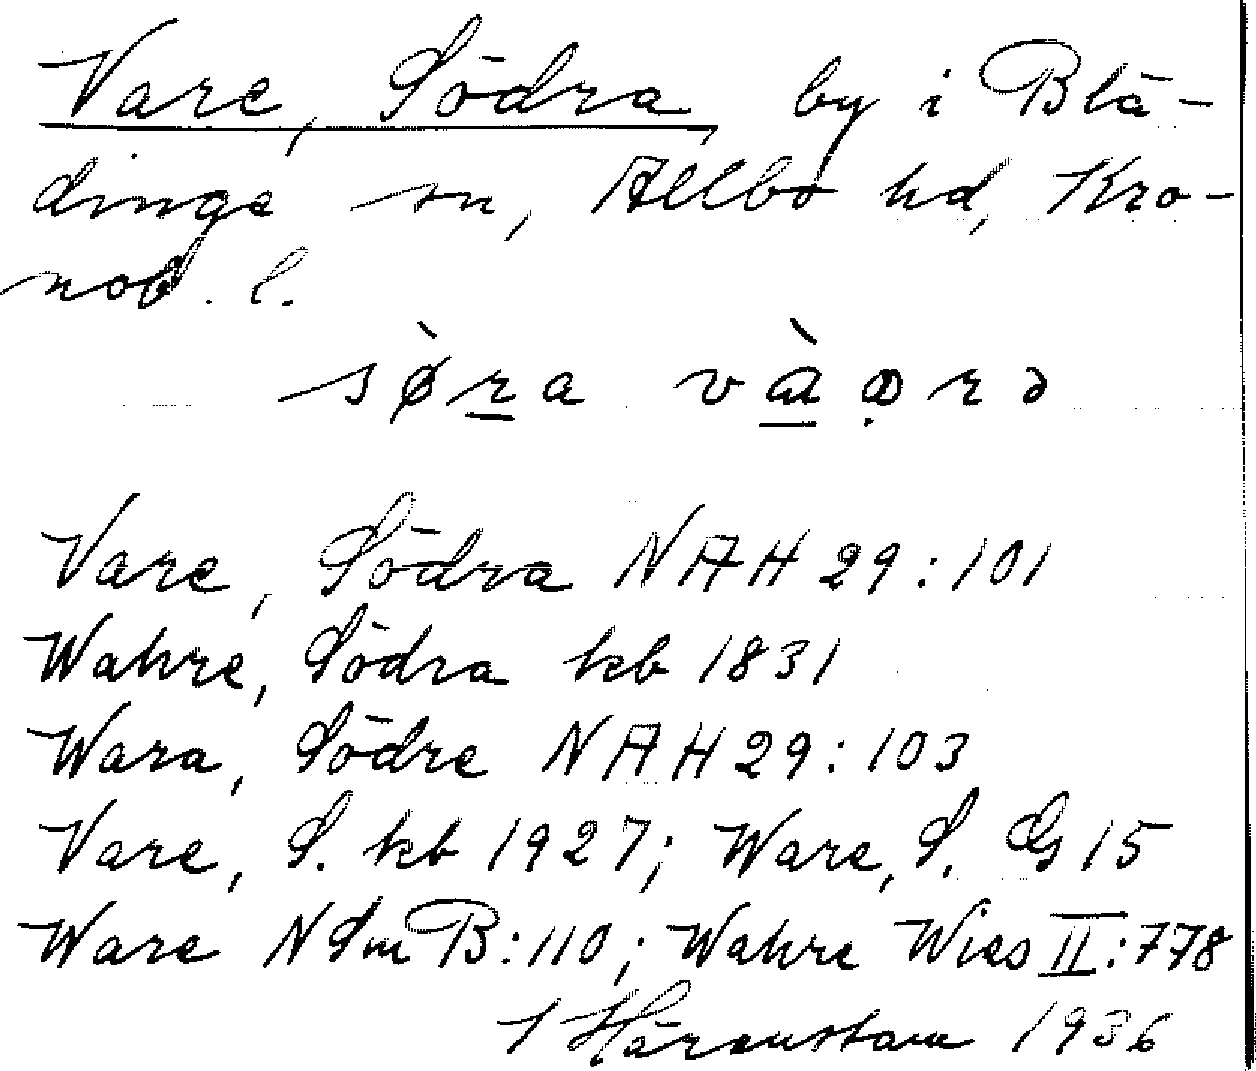 Vare, Södra, by i Blä-
dinge sn, Allbo hd, Kro-
nob. l.
sø̀ra và̱ọrə
Vare, Södra NAH 29:101
Wahre, Södra kb 1831
Wara, Södre NAH 29:103
Vare, S. kb 1927; Ware, S. G 15
Ware NSmB:110; Wahre Wies II:778
Härenstam 1936